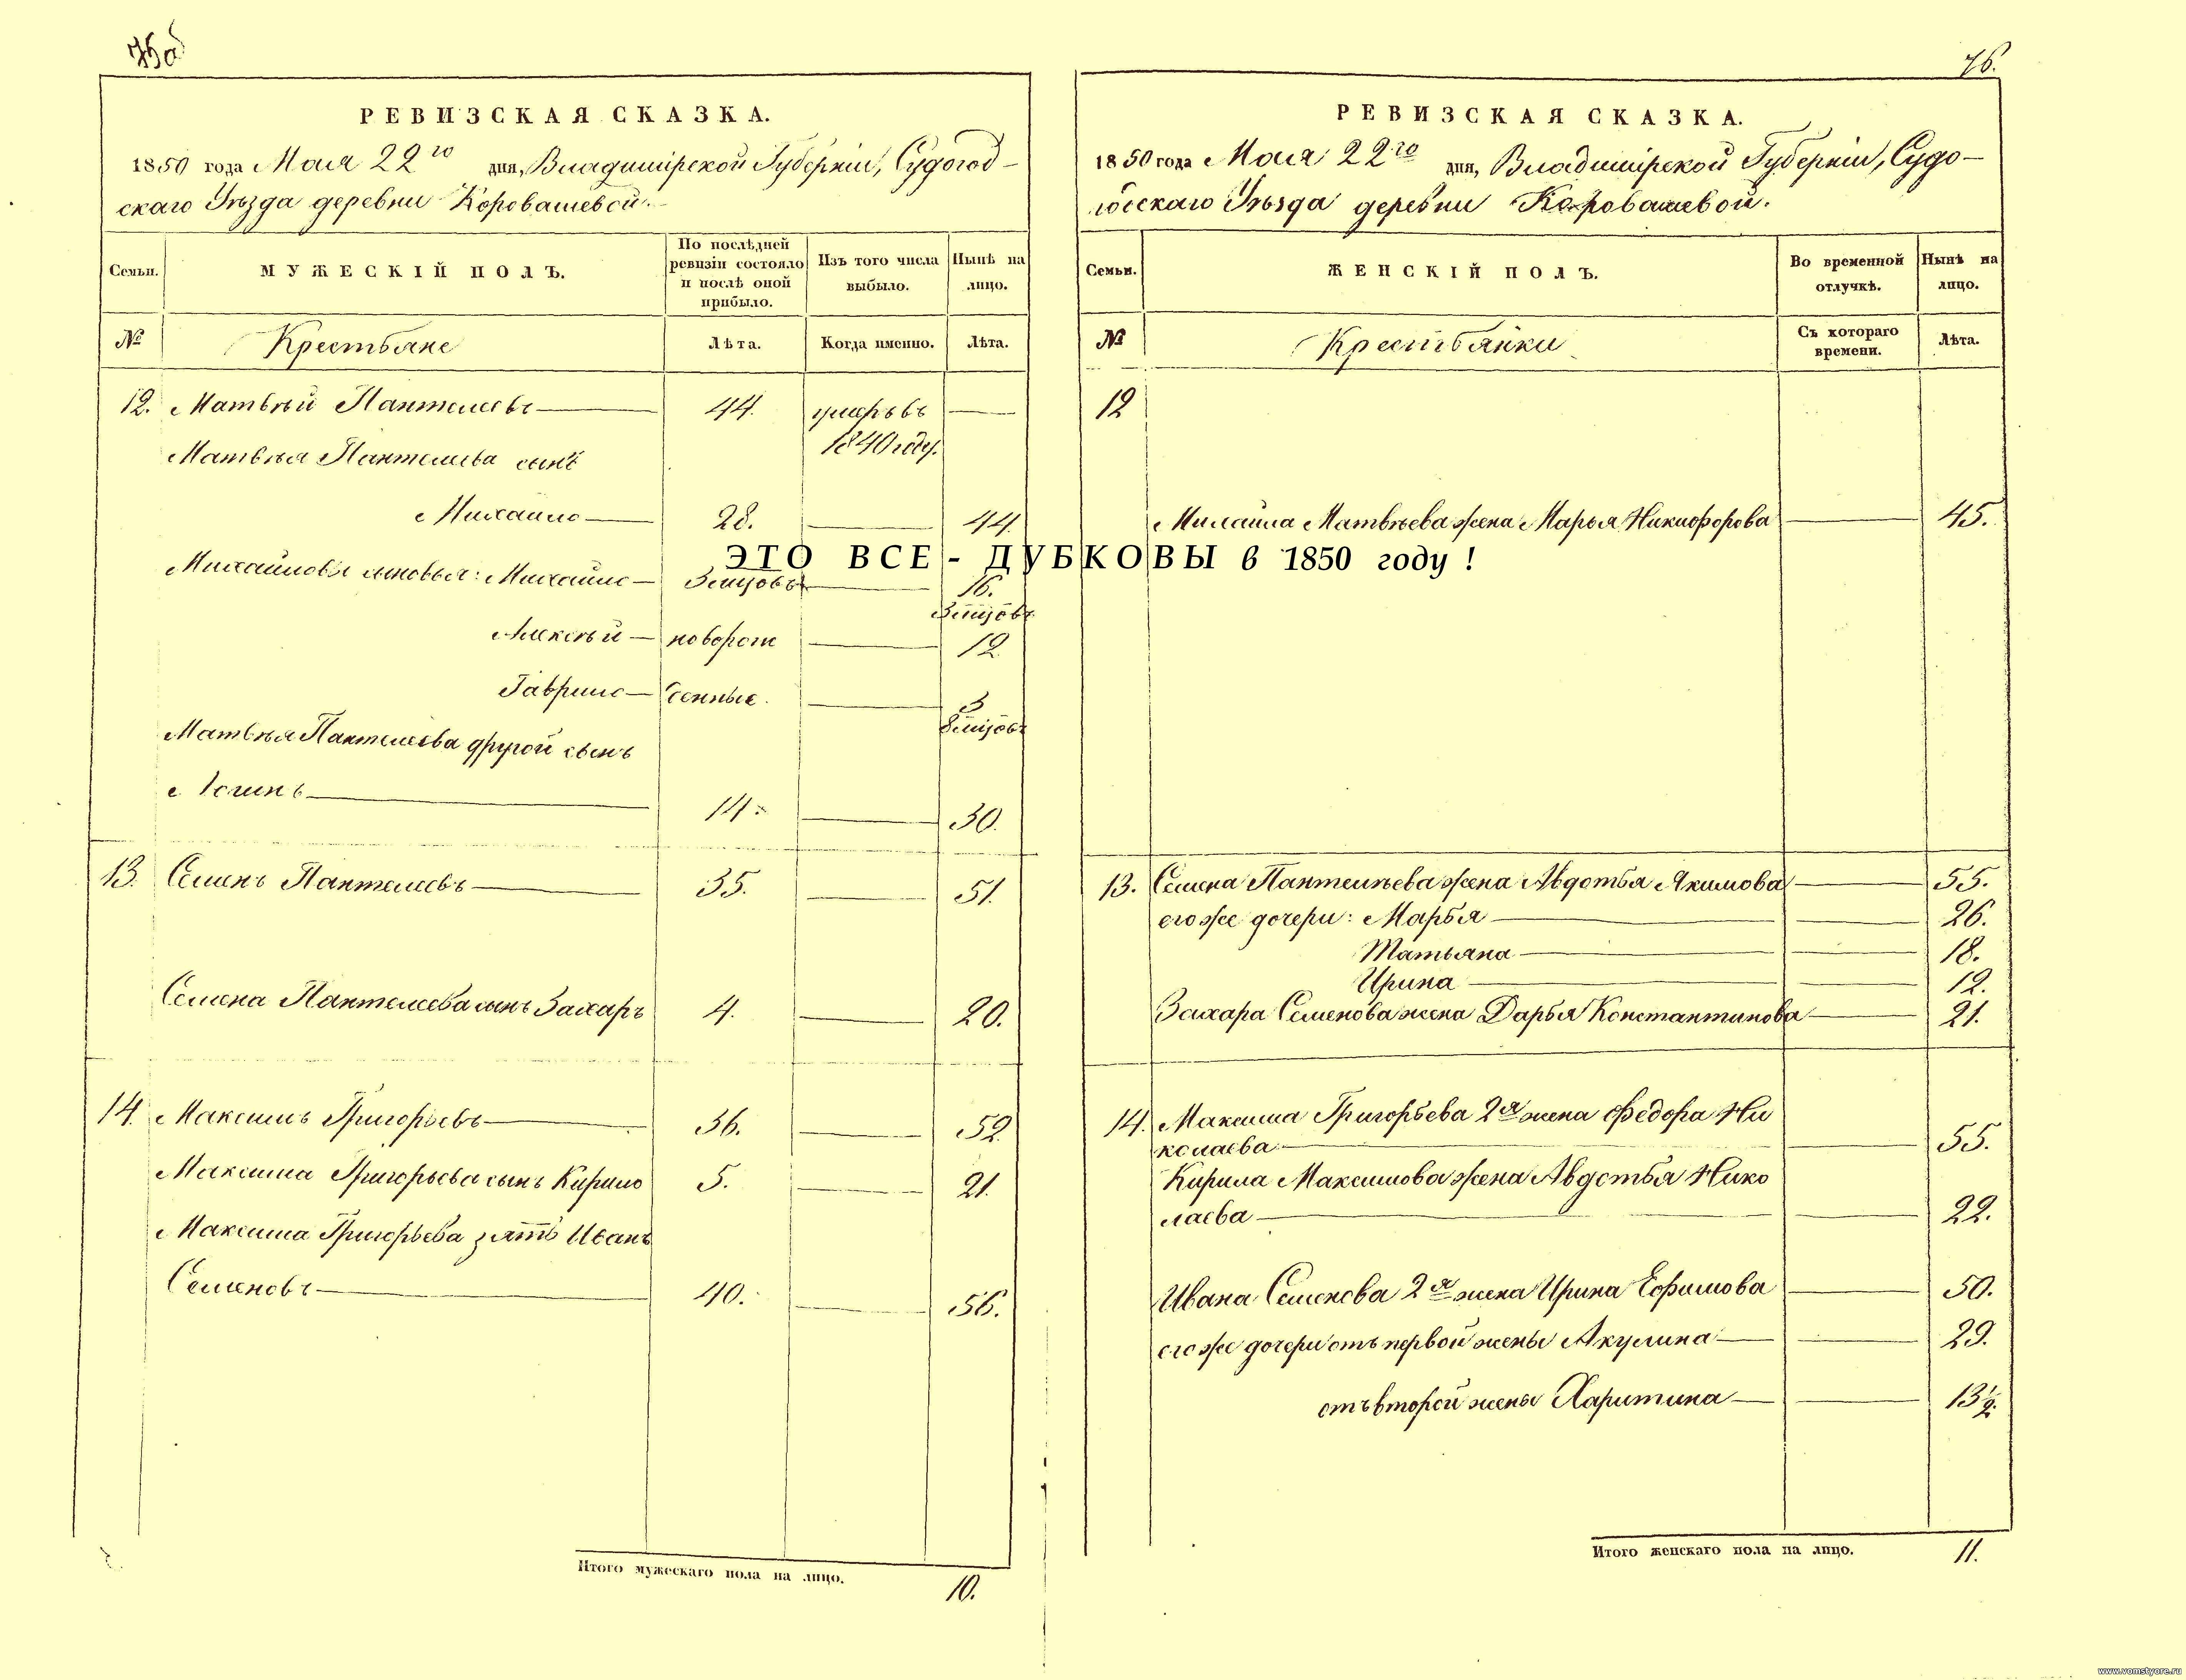 75об
РЕВИЗСКАЯ СКАЗКА.
1850 года Мая 22го дня, Владимірской Губерніи, Судогод-
скаго Уѣзда деревни Коровашевой.
Семьи.
МУЖЕСКІЙ ПОЛЪ.
По послѣдней
ревизіи состояло
и послѣ оной
прибыло.
Изъ того числа
выбыло.
Нынѣ на
лицо.
№
Крестьяне
Лѣта.
Когда именно.
Лѣта.
12. Матвѣй Пантелеевъ 44. умеръ въ
1840 году.
Матвѣя Пантелеева сынъ
Михайло 28. 44.
Михайловы сыновья: Михайло 16.
Алексѣй новорож 12.
Гаврило денные. 3
Матвѣя Пантелеева другой сынъ
Логинъ 14. 30.
13. Семенъ Пантелеевъ 35. 51.
Семена Пантелеева сынъ Захаръ 4. 20.
14. Максимъ Григорьевъ 36. 52.
Максима Григорьева сынъ Кирило 5. 21.
Максима Григорьева зять Иванъ
Семеновъ 40. 56.
Итого мужескаго пола на лицо. 10.
ЭТО ВСЕ - ДУБКОВЫ в 1850 году !
76.
РЕВИЗСКАЯ СКАЗКА.
1850 года Мая 22го дня, Владимірской Губерніи, Судо-
годскаго Уѣзда деревни Коровашевой.
Семьи.
ЖЕНСКІЙ ПОЛЪ.
Во временной
отлучкѣ.
Нынѣ на
лицо.
№
Крестьянки
Съ котораго
времени.
Лѣта.
12
Михайла Матвѣева жена Марья Никифорова 45.
13. Семена Пантелѣева жена Авдотья Якимова 55.
его же дочери: Марья 26.
Татьяна 18.
Ирина 12.
Захара Семенова жена Дарья Константинова 21.
14. Максима Григорьева 2я жена Федора Ни
колаева 55.
Кирила Максимова жена Авдотья Нико
лаева 22.
Ивана Семенова 2я жена Ирина Ефимова 50.
его же дочери отъ первой жены Акулина 29.
отъ второй жены Харитина 13½.
Итого женскаго пола на лицо. 11.
www.vomstyore.ru